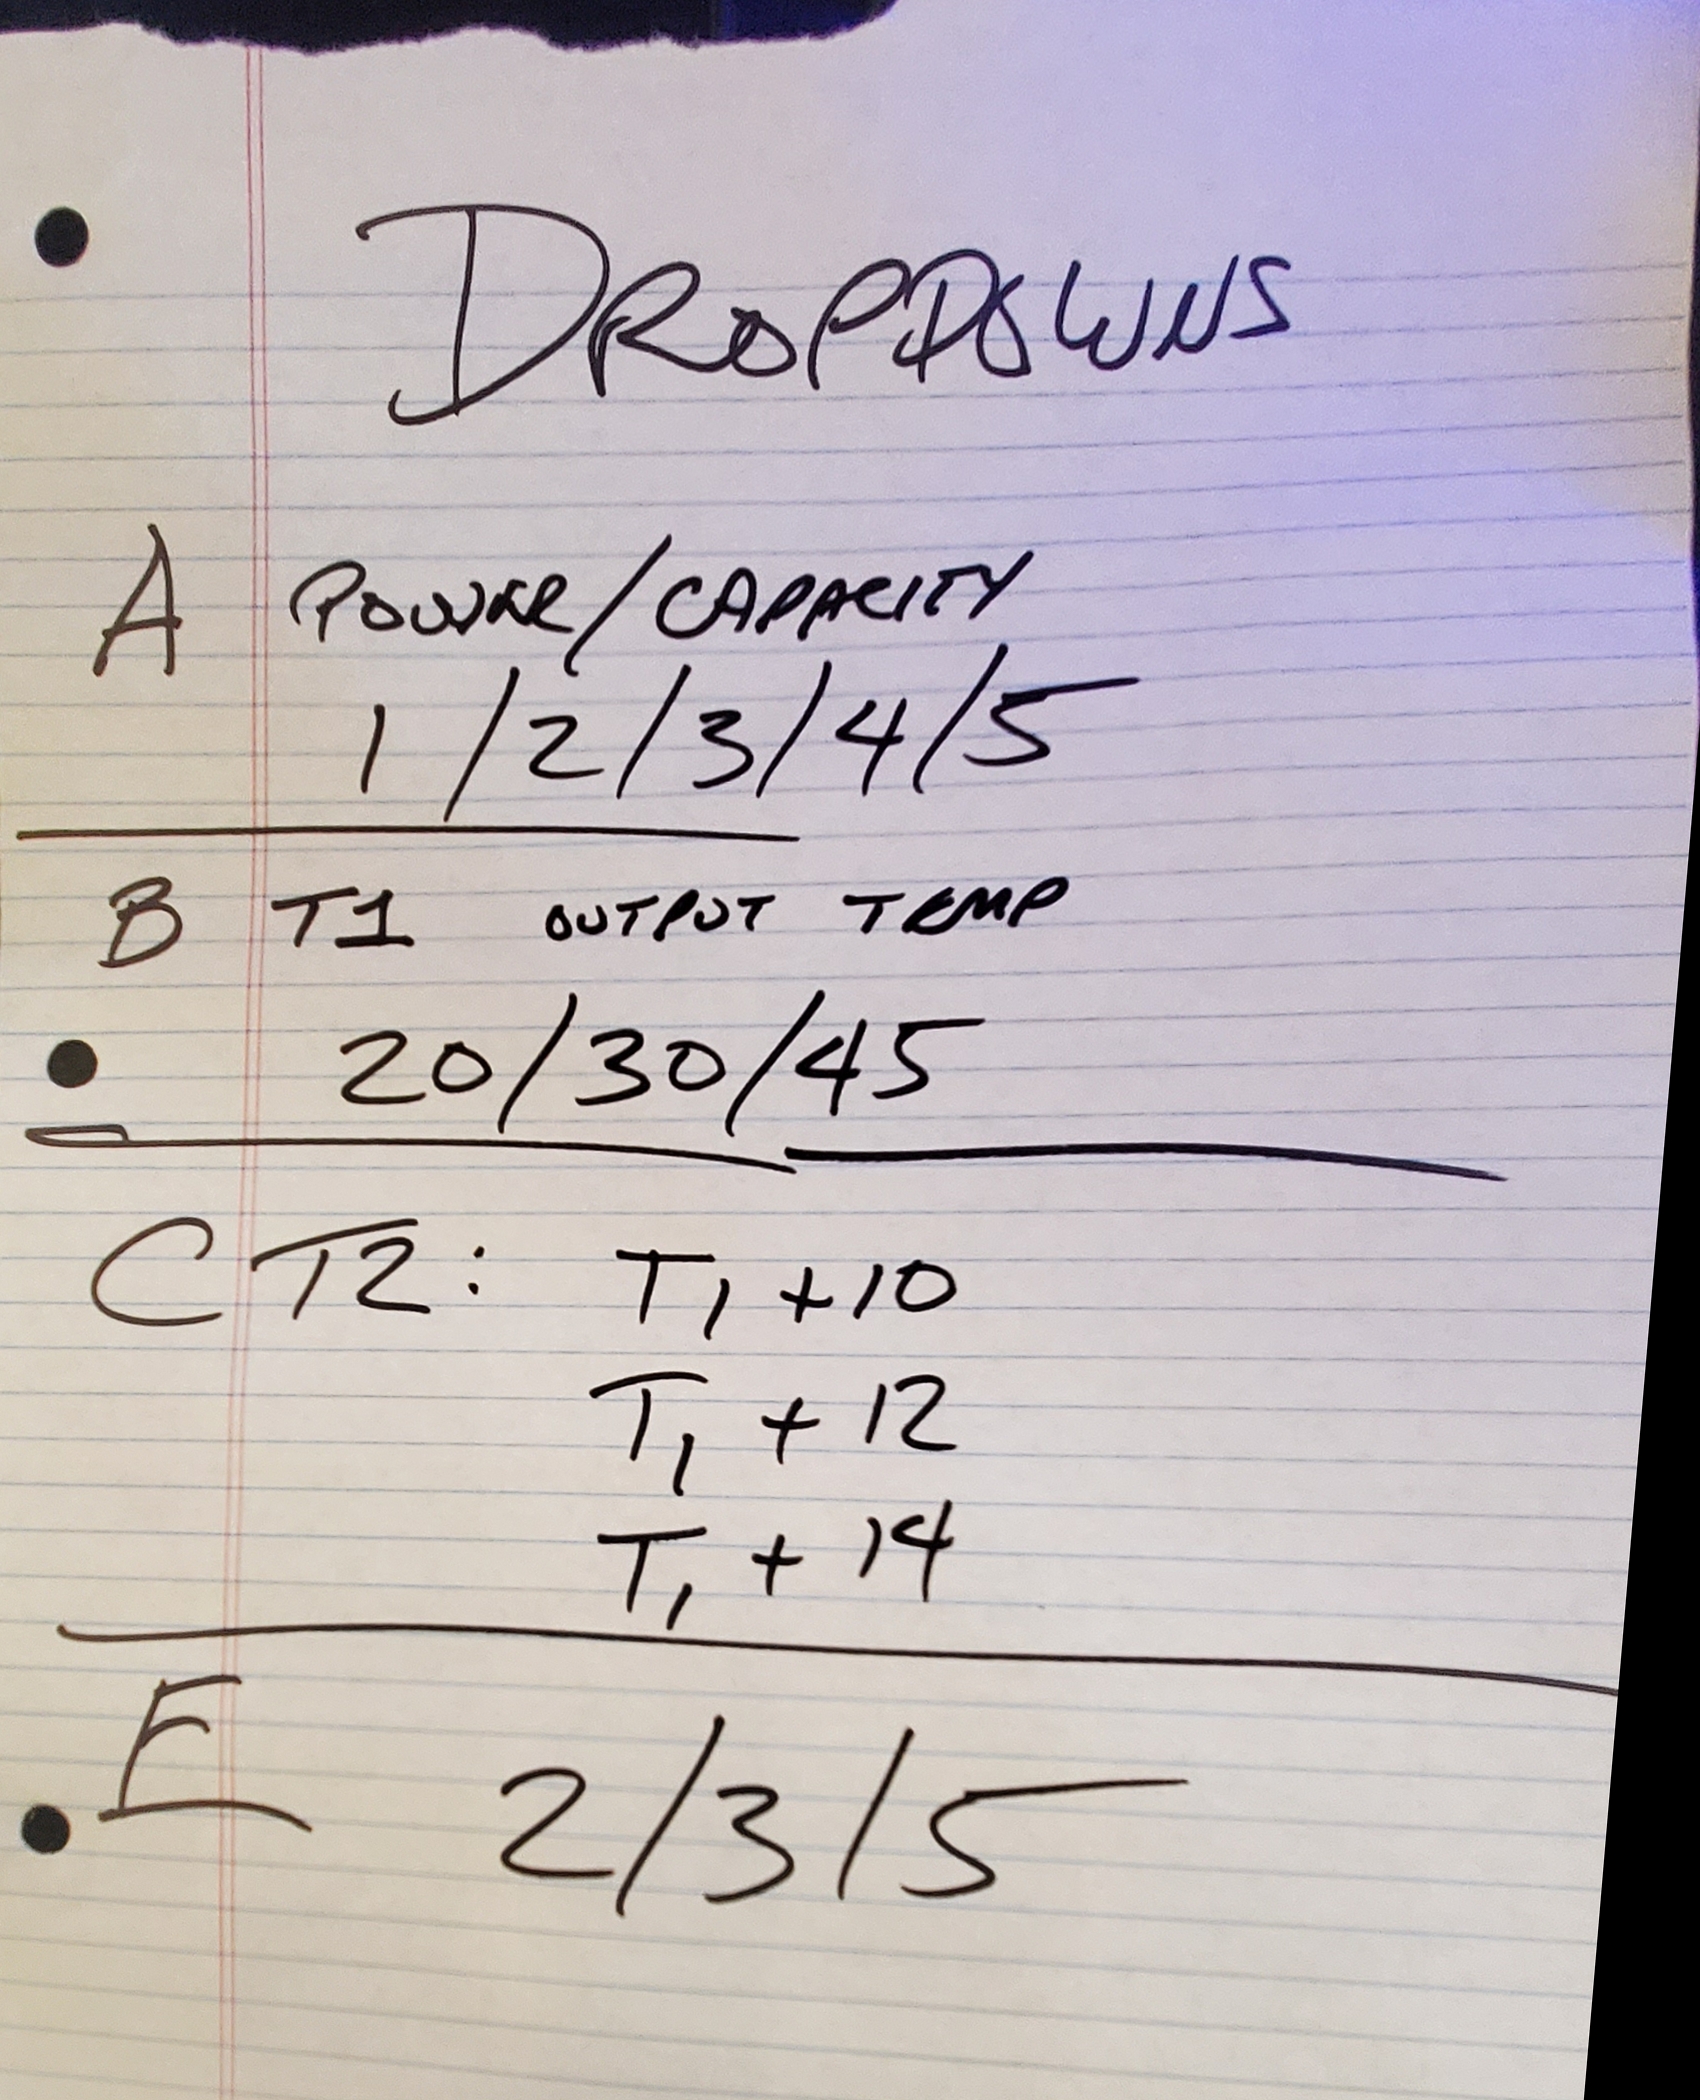 DROPDOWNS
A POWER/CAPACITY
1/2/3/4/5
B T1 OUTPUT TEMP
20/30/45
C T2: T1 +10
T1 + 12
T1 + 14
E 2/3/5